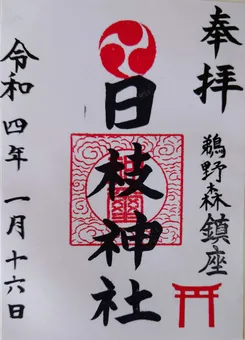 奉拝
鵜野森鎮座
日枝神社
令和四年 一月十六日